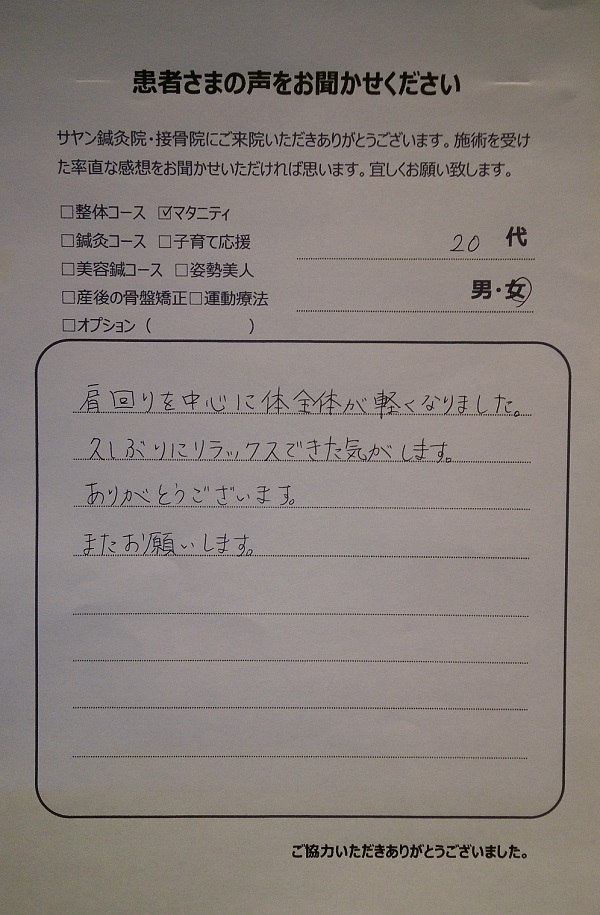 患者さまの声をお聞かせください
サヤン鍼灸院・接骨院にご来院いただきありがとうございます。施術を受け
た率直な感想をお聞かせいただければ思います。宜しくお願い致します。
□整体コース ☑マタニティ
□鍼灸コース □子育て応援
20 代
□美容鍼コース □姿勢美人
男・女
□産後の骨盤矯正□運動療法
□オプション（ ）
肩回りを中心に体全体が軽くなりました。
久しぶりにリラックスできた気がします。
ありがとうございます。
またお願いします。
ご協力いただきありがとうございました。